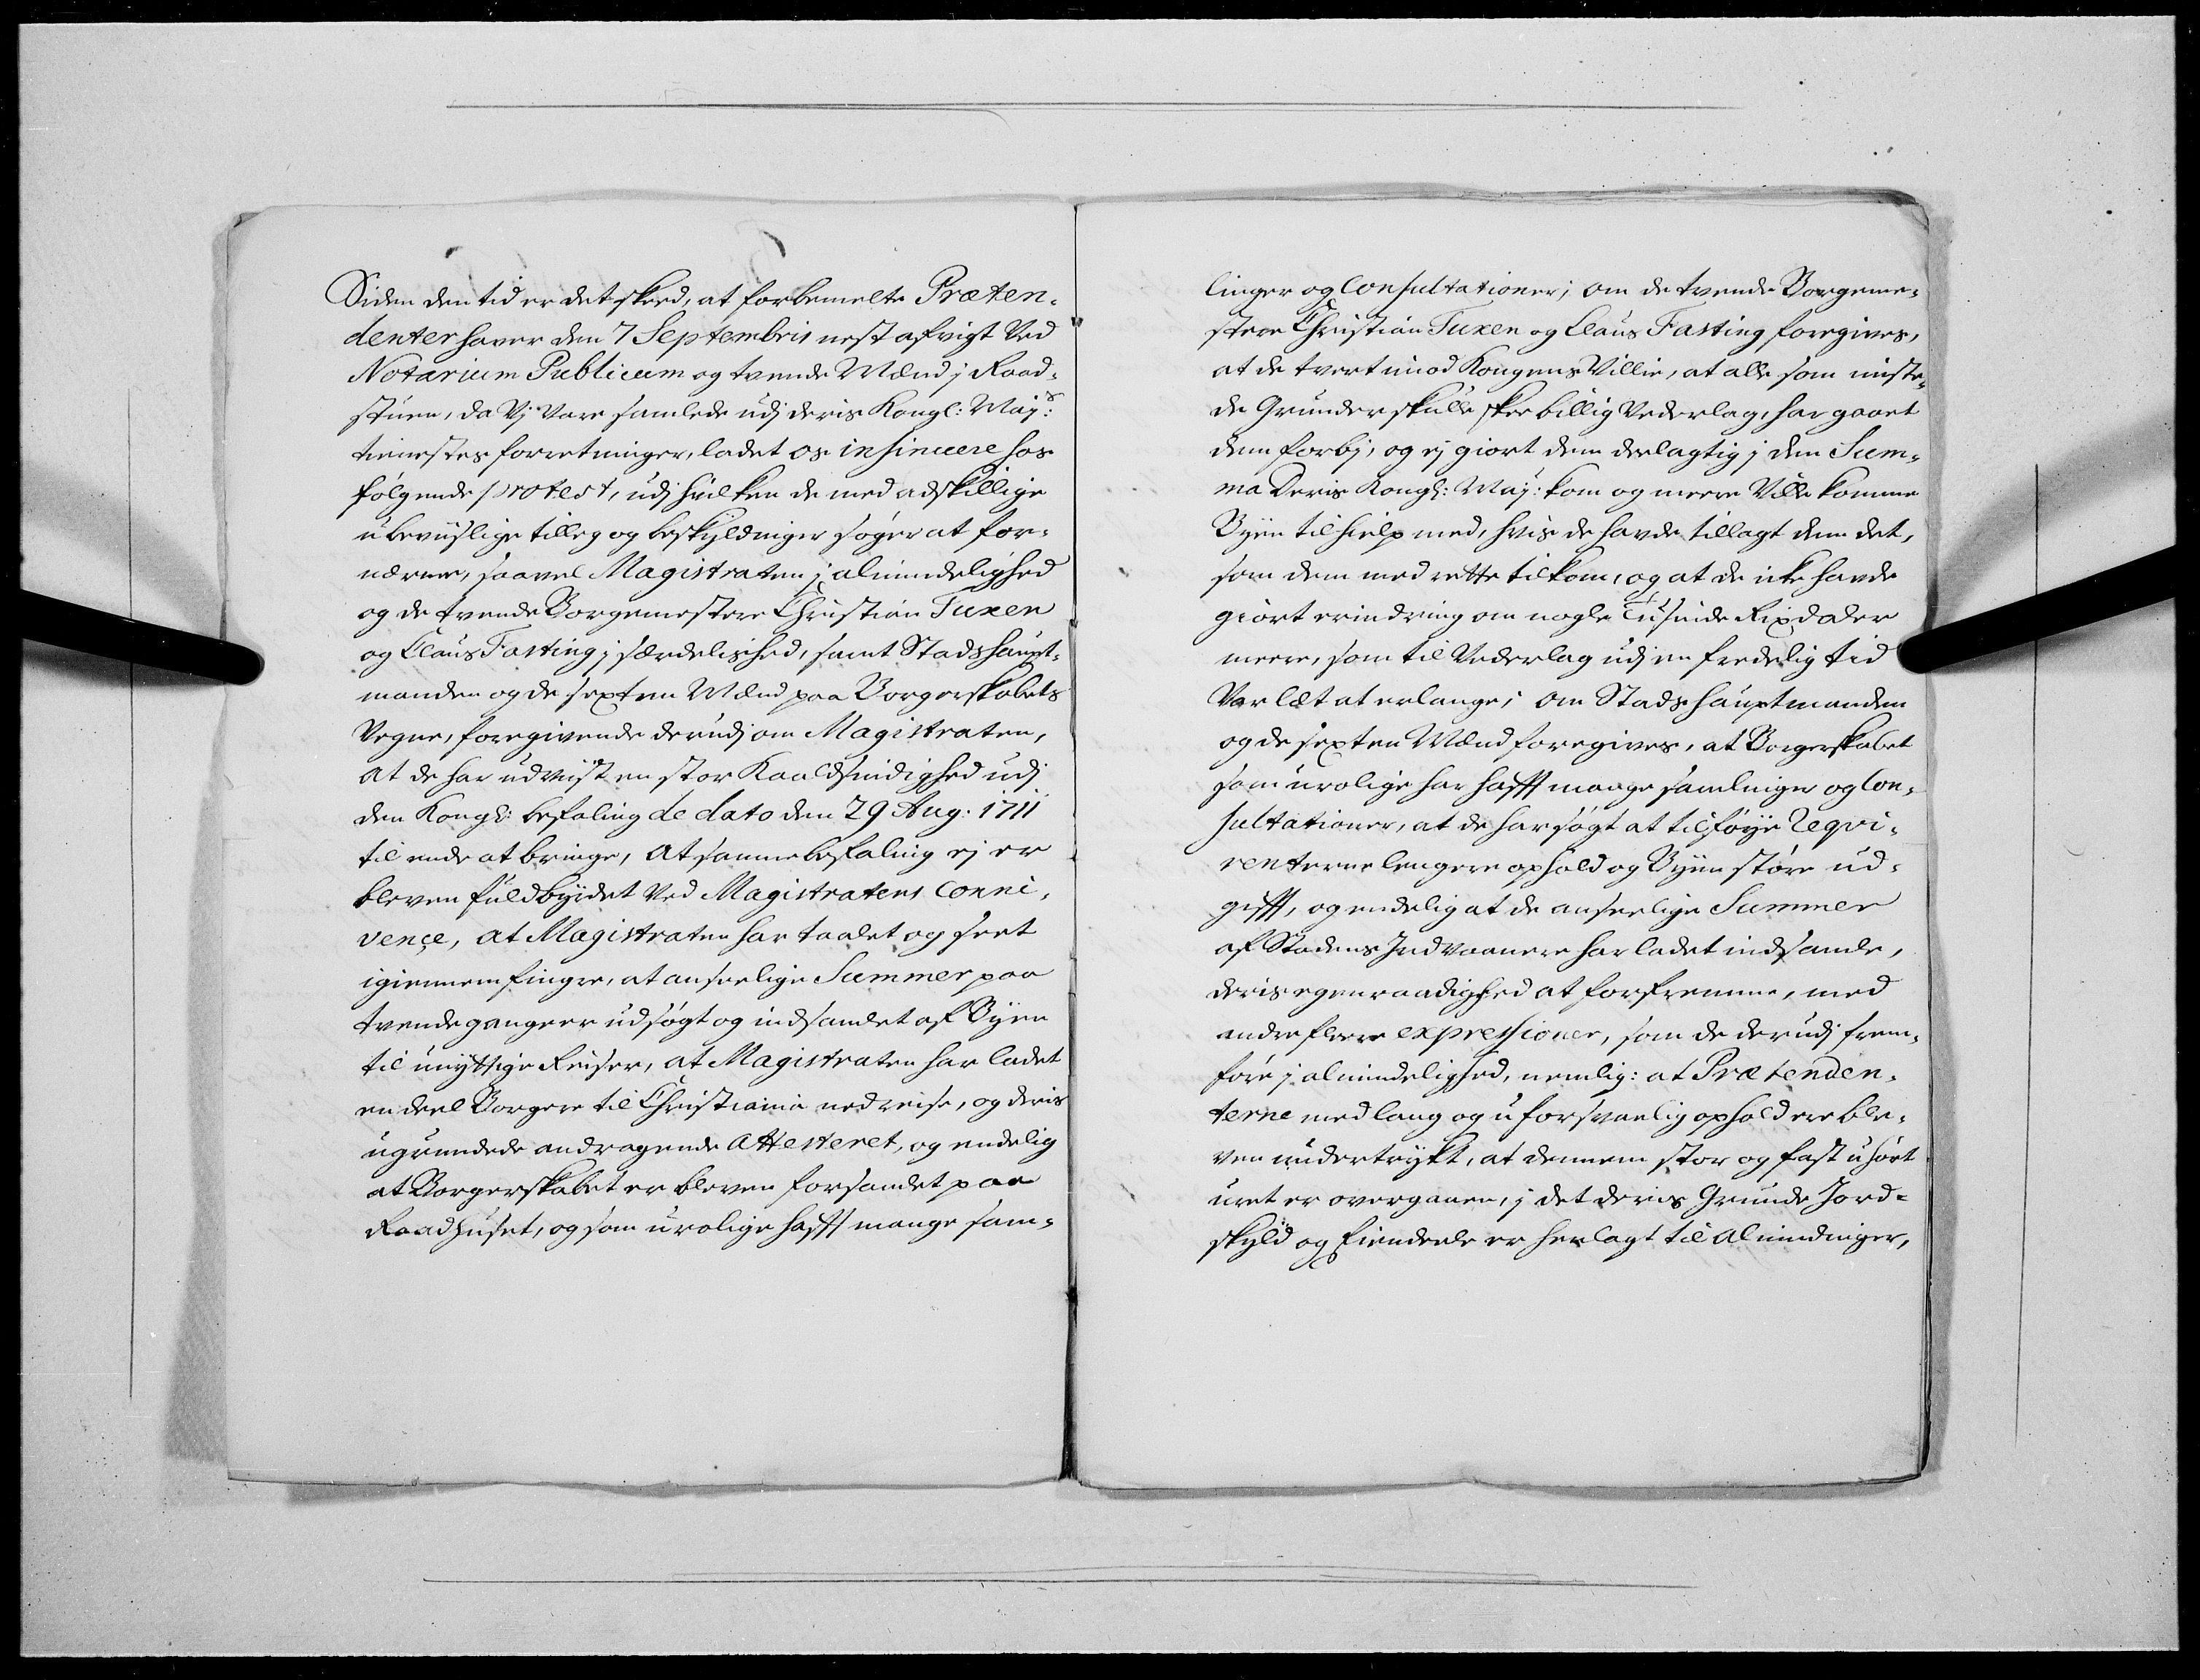 Siden den tid er det skeed, at forbemelte Præten-
denter haver den 7 Septembris nest afvigt Ved
Notarium Publicum og tvende Mænd j Raad-
stuen, da Vj Vare samlede udj deris Kongl: Maj:s
tienestes forretninger, ladet os insinuere hos
følgende protest, udj hvilken de med adskillige
ubeviislige tilleg og beskyldninger søger at for-
nærme, saavel Magistraten j almindelighed
og de tvende Borgemestere Christian Tuxen
og Claus Fasting j særdelished, samt Stadshaupt-
manden og de sexten Mænd paa Borgerskabets
Vegne, foregivende derudj om Magistraten,
at de har udviist en stor Kaaldsindighed udj
den Kongl: befaling de dato den 29 Aug: 1711
til ende at bringe, at samme befaling ej er
bleven fuldbyrdet Ved Magistratens conni-
vençe, at Magistraten har taalet og seet
igiennem fingre, at anseelige Summer paa
tvende gange er udsøgt og indsamlet af Byen
til unyttige Reiser, at Magistraten har ladet
en deel Borgere til Christiania ned reise, og deris
ugrundede andragende attesteret, og endelig
at Borgerskabet er bleven forsamlet paa
Raadhuset, og som urolige hafft mange sam-
linger og Consultationer; om de tvende Borgeme-
stere Christian Tuxen og Claus Fasting foregives,
at de tvert imod Kongens Villie, at alle som miste-
de Grunder skulle skee billig Vederlag, har gaaet
dem forbj, og ej giort dem deelagtig j den Sum-
ma Deris Kongl: Maj: kom og meere Ville komme
Byen til hielp med, hvis de havde tillagt dem det,
som dem med rette tilkom, og at de icke havde
giort erindring om nogle Tusinde Rixdaler
meere, som til Vederlag udj en fredelig tid
Var læt at erlange; om Stadshauptmanden
og de sexten Mænd foregives, at Borgerskabet
som urolige har hafft mange samlinger og Con-
sultationer, at de har søgt at tilføye Reqvi-
renterne lengere ophold og Byen støre ud-
gifft, og endelig at de anseelige Summer
af Stadens Indvaanere har ladet indsamle,
deris egenraadighed at forfremme, med
andre fleere expressioner, som de derudj frem-
føre j almindelighed, nemlig: at Prætenden-
terne med lang og uforsvarlig ophold ere ble-
ven undertrykt, at dennem stor og fast uhørt
uret er overgaaen, j det deris Grunde Jord-
skyld og Eiendeele er henlagt til Almindinger,